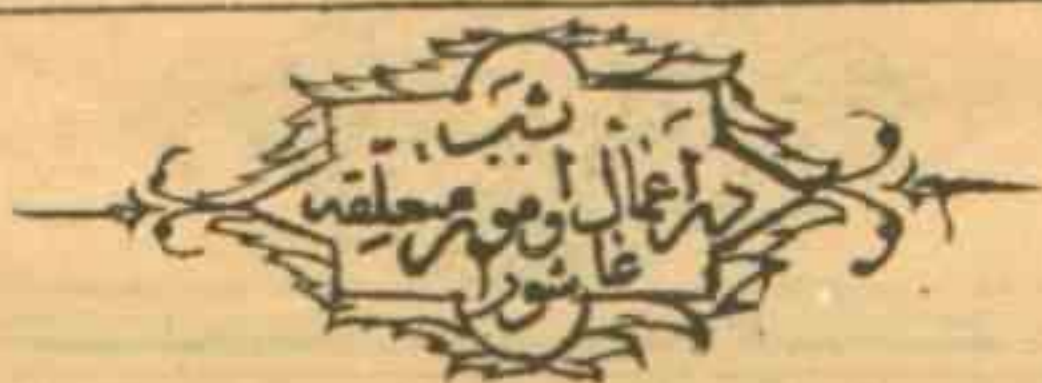 شب
در اعمال و امور متعلقه
عاشورا